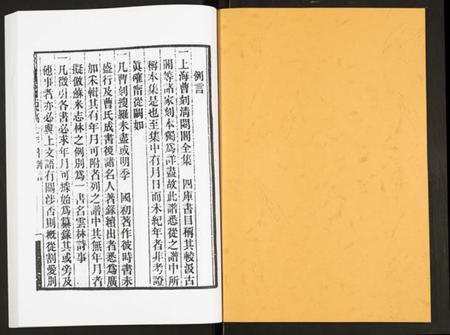 例言
一上海曹刻清閟閣全集　四庫書目稱其較汲古
閣等諸家刻本獨爲詳盡故此譜悉從之譜中所
稱本集是也至集中有月日而未紀年者非考證
眞確甯從闕如
一凡曹刻搜羅未盡或明季　國初著作彼時書未
盛行及曹氏成書後諸名人著錄續出者悉爲廣
加釆輯其有年月可附者列之譜中其無年月者
擬倣蘇米志林之例別爲一書名雲林詩事
一凡徵引各書必求年月可據始爲纂錄其或旁及
他事者亦必與上文語有關涉否則概從割愛則